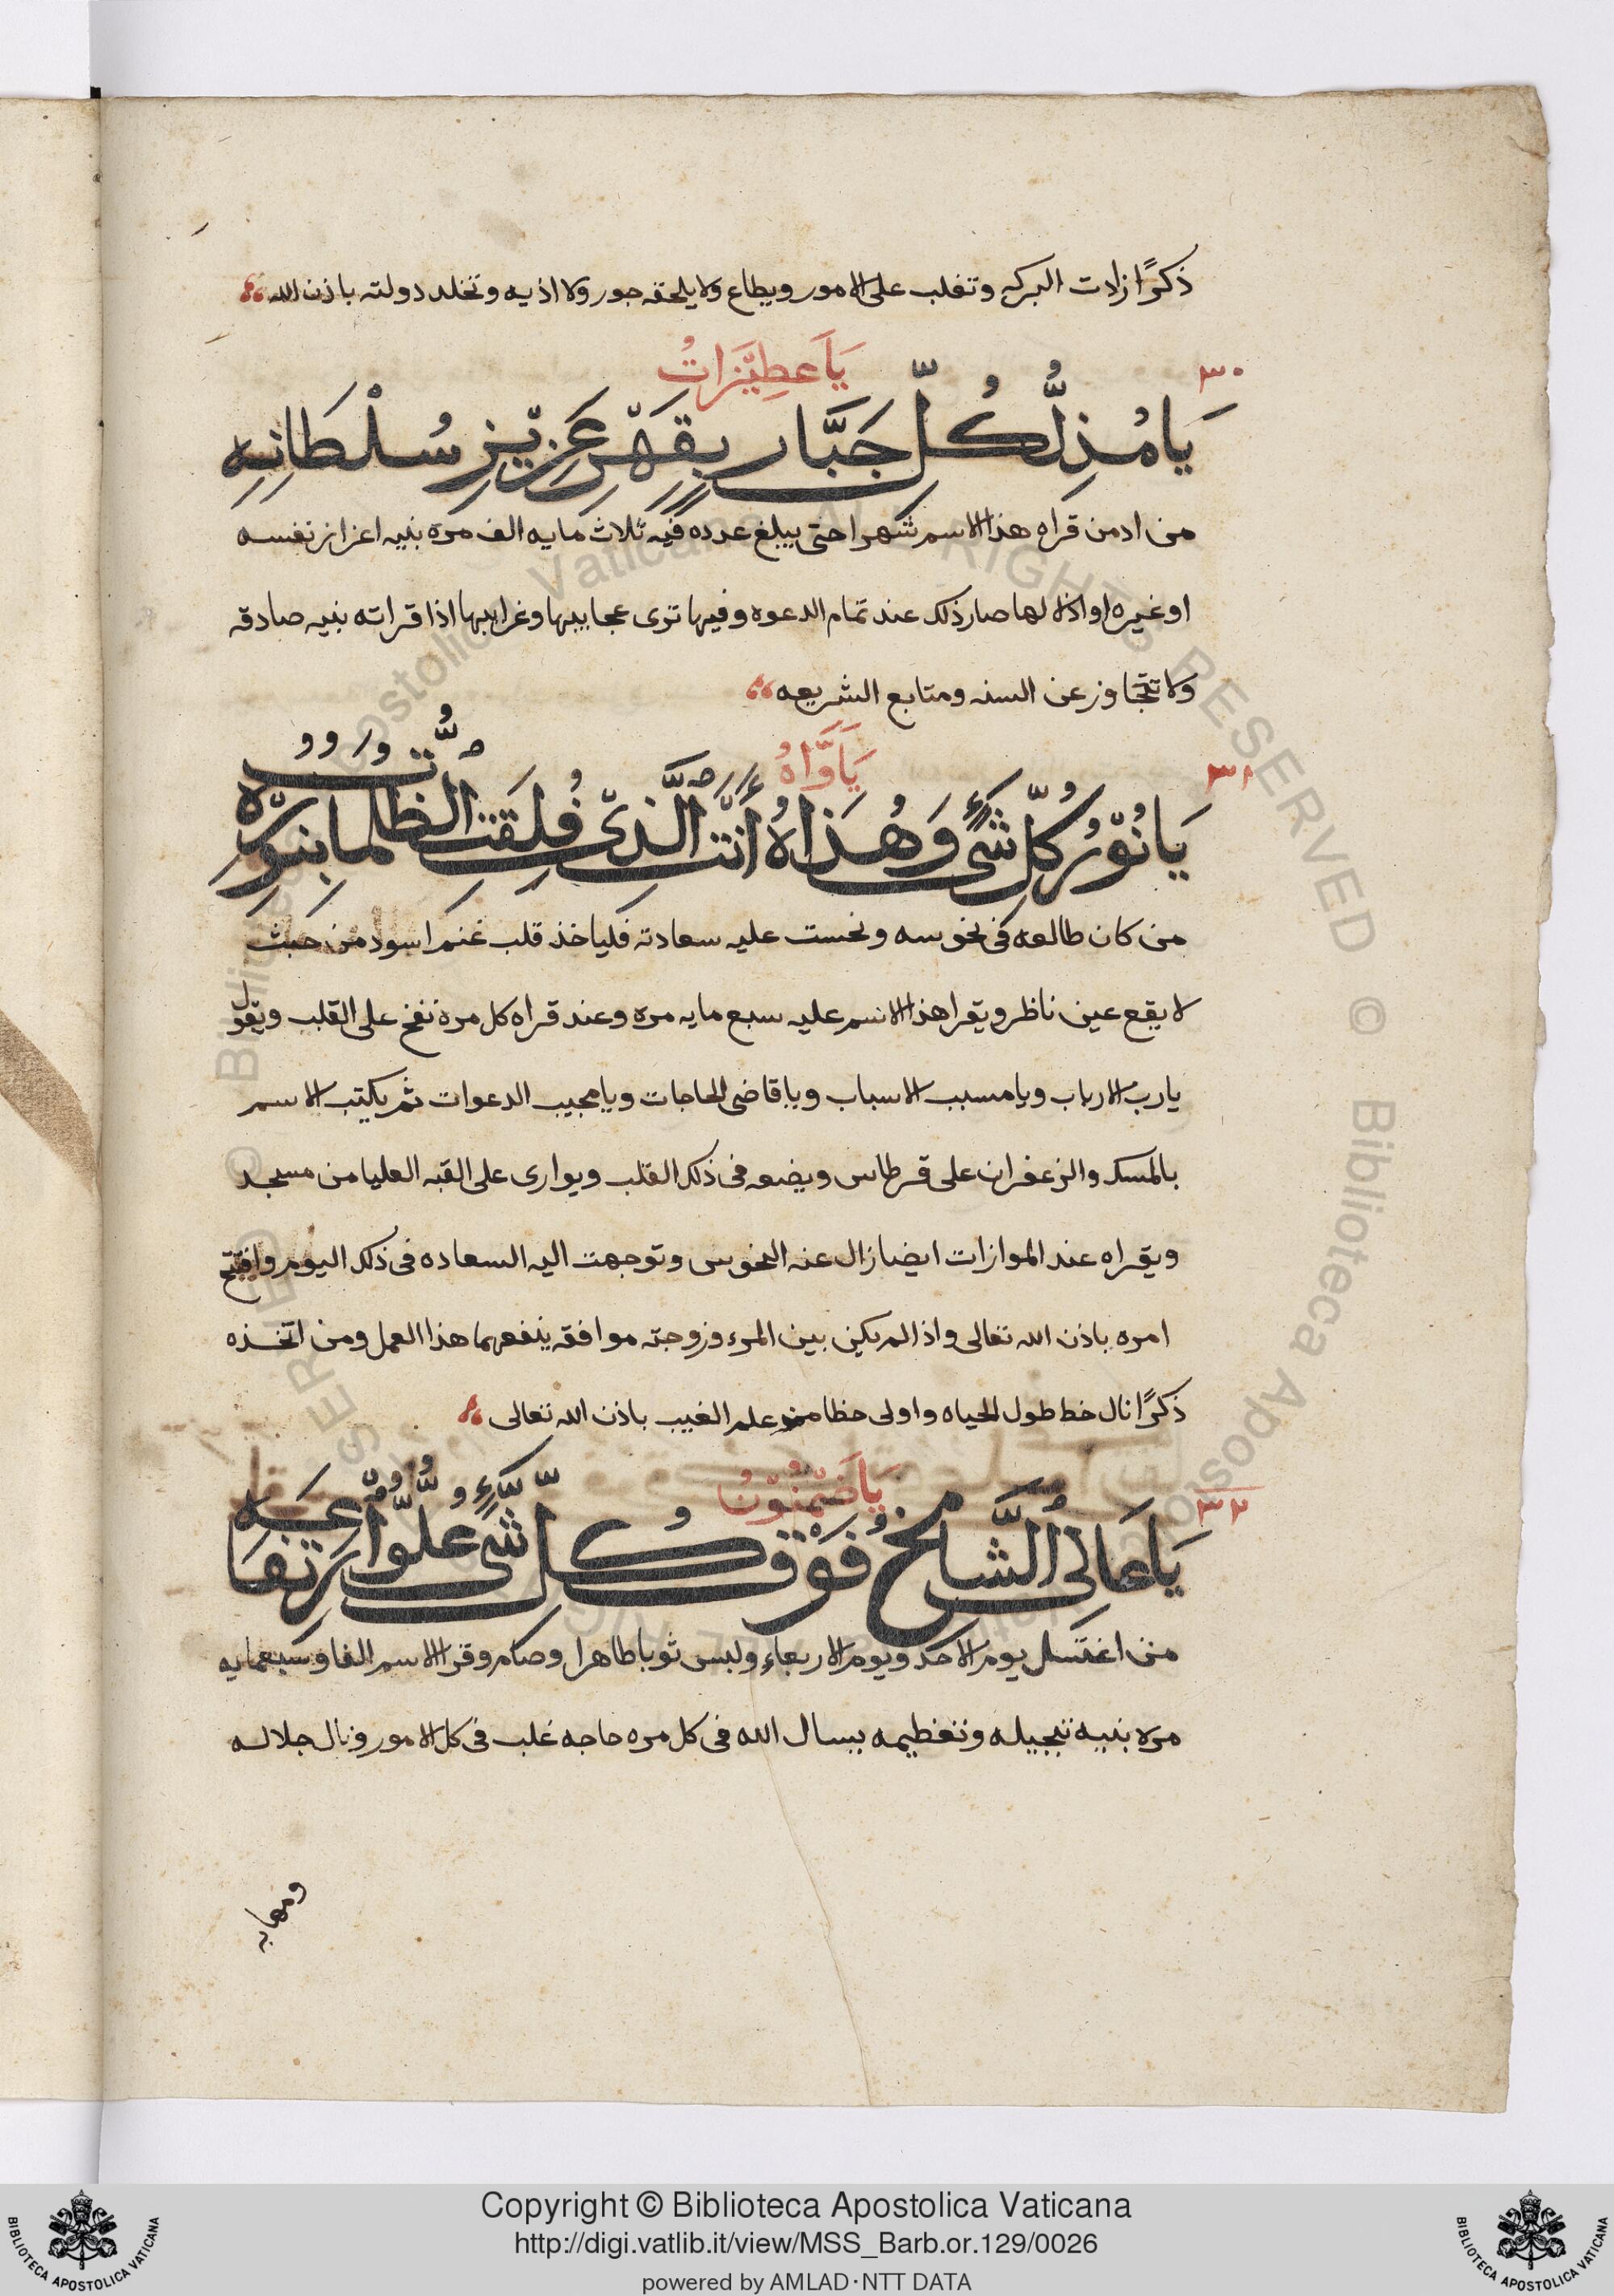 ذكرًا زادت البركه وتغلب على الامور ويطاع ولا يلحقه جور ولا اذيه وتخلد دولته باذن الله
يَاعَطِيَّزَاتُ
٣٠
يَامُذِلَّ كُلِّ جَبَّارٍ بِقَهْرِ عَزِيْزِ سُلْطَانِهِ
من ادمن قراه هذا الاسم شهرا حتى يبلغ عدده فيه ثلاث مايه الف مره بنيه اعزاز نفسه
او غيره او اذلالها صار ذلك عند تمام الدعوه وفيها ترى عجايبها وغرايبها اذا قراته بنيه صادقه
ولا تتجاوز عن السنه ومتابع الشريعه
يَاوَّاهُ
٣١
يَانُوْرُ كُلِّ شَىءٍ وَهُدَاهُ أَنْتَ الَّذِىْ فُلِقَتِ الظُّلُمَاتُ بِنُوْرِهِ
من كان طالعه فى نحوسه ونحست عليه سعادته فلياخذ قلب غنم اسود من حيث
لا يقع عين ناظر ويقرا هذا الاسم عليه سبع مايه مره وعند قراه كل مره نفخ على القلب ويقول
يارب الارباب ويا مسبب الاسباب ويا قاضى الحاجات ويا مجيب الدعوات ثم يكتب الاسم
بالمسك والزعفران على قرطاس ويضعه فى ذلك القلب ويوارى على القبه العليا من مسجد
ويقراه عند الموازات ايضا زال عنه النحوس وتوجهت اليه السعاده فى ذلك اليوم وافتتح
امره باذن الله تعالى واذا لم يكن بين المرء وزوجته موافقه ينفعهما هذا العمل ومن اتخذه
ذكرًا نال خط طول الحياه واولى حظا من علم الغيب باذن الله تعالى
يَاضَمْنُوْنُ
٣٢
يَاعَالِى الشَّامِخُ فَوْقَ كُلِّ شَىءٍ عُلُوُّ ارْتِفَاعِهِ
من اغتسل يوم الاحد ويوم الاربعاء ولبس ثوبا طاهرا وصام وقرا الاسم الفا وسبعمايه
مره بنيه تبجيله وتعظيمه يسال الله فى كل مره حاجه غلب فى كل الامور ونال جلاله
ومهابه
Copyright © Biblioteca Apostolica Vaticana
http://digi.vatlib.it/view/MSS_Barb.or.129/0026
powered by AMLAD·NTT DATA
BIBLIOTECA APOSTOLICA VATICANA
BIBLIOTECA APOSTOLICA VATICANA